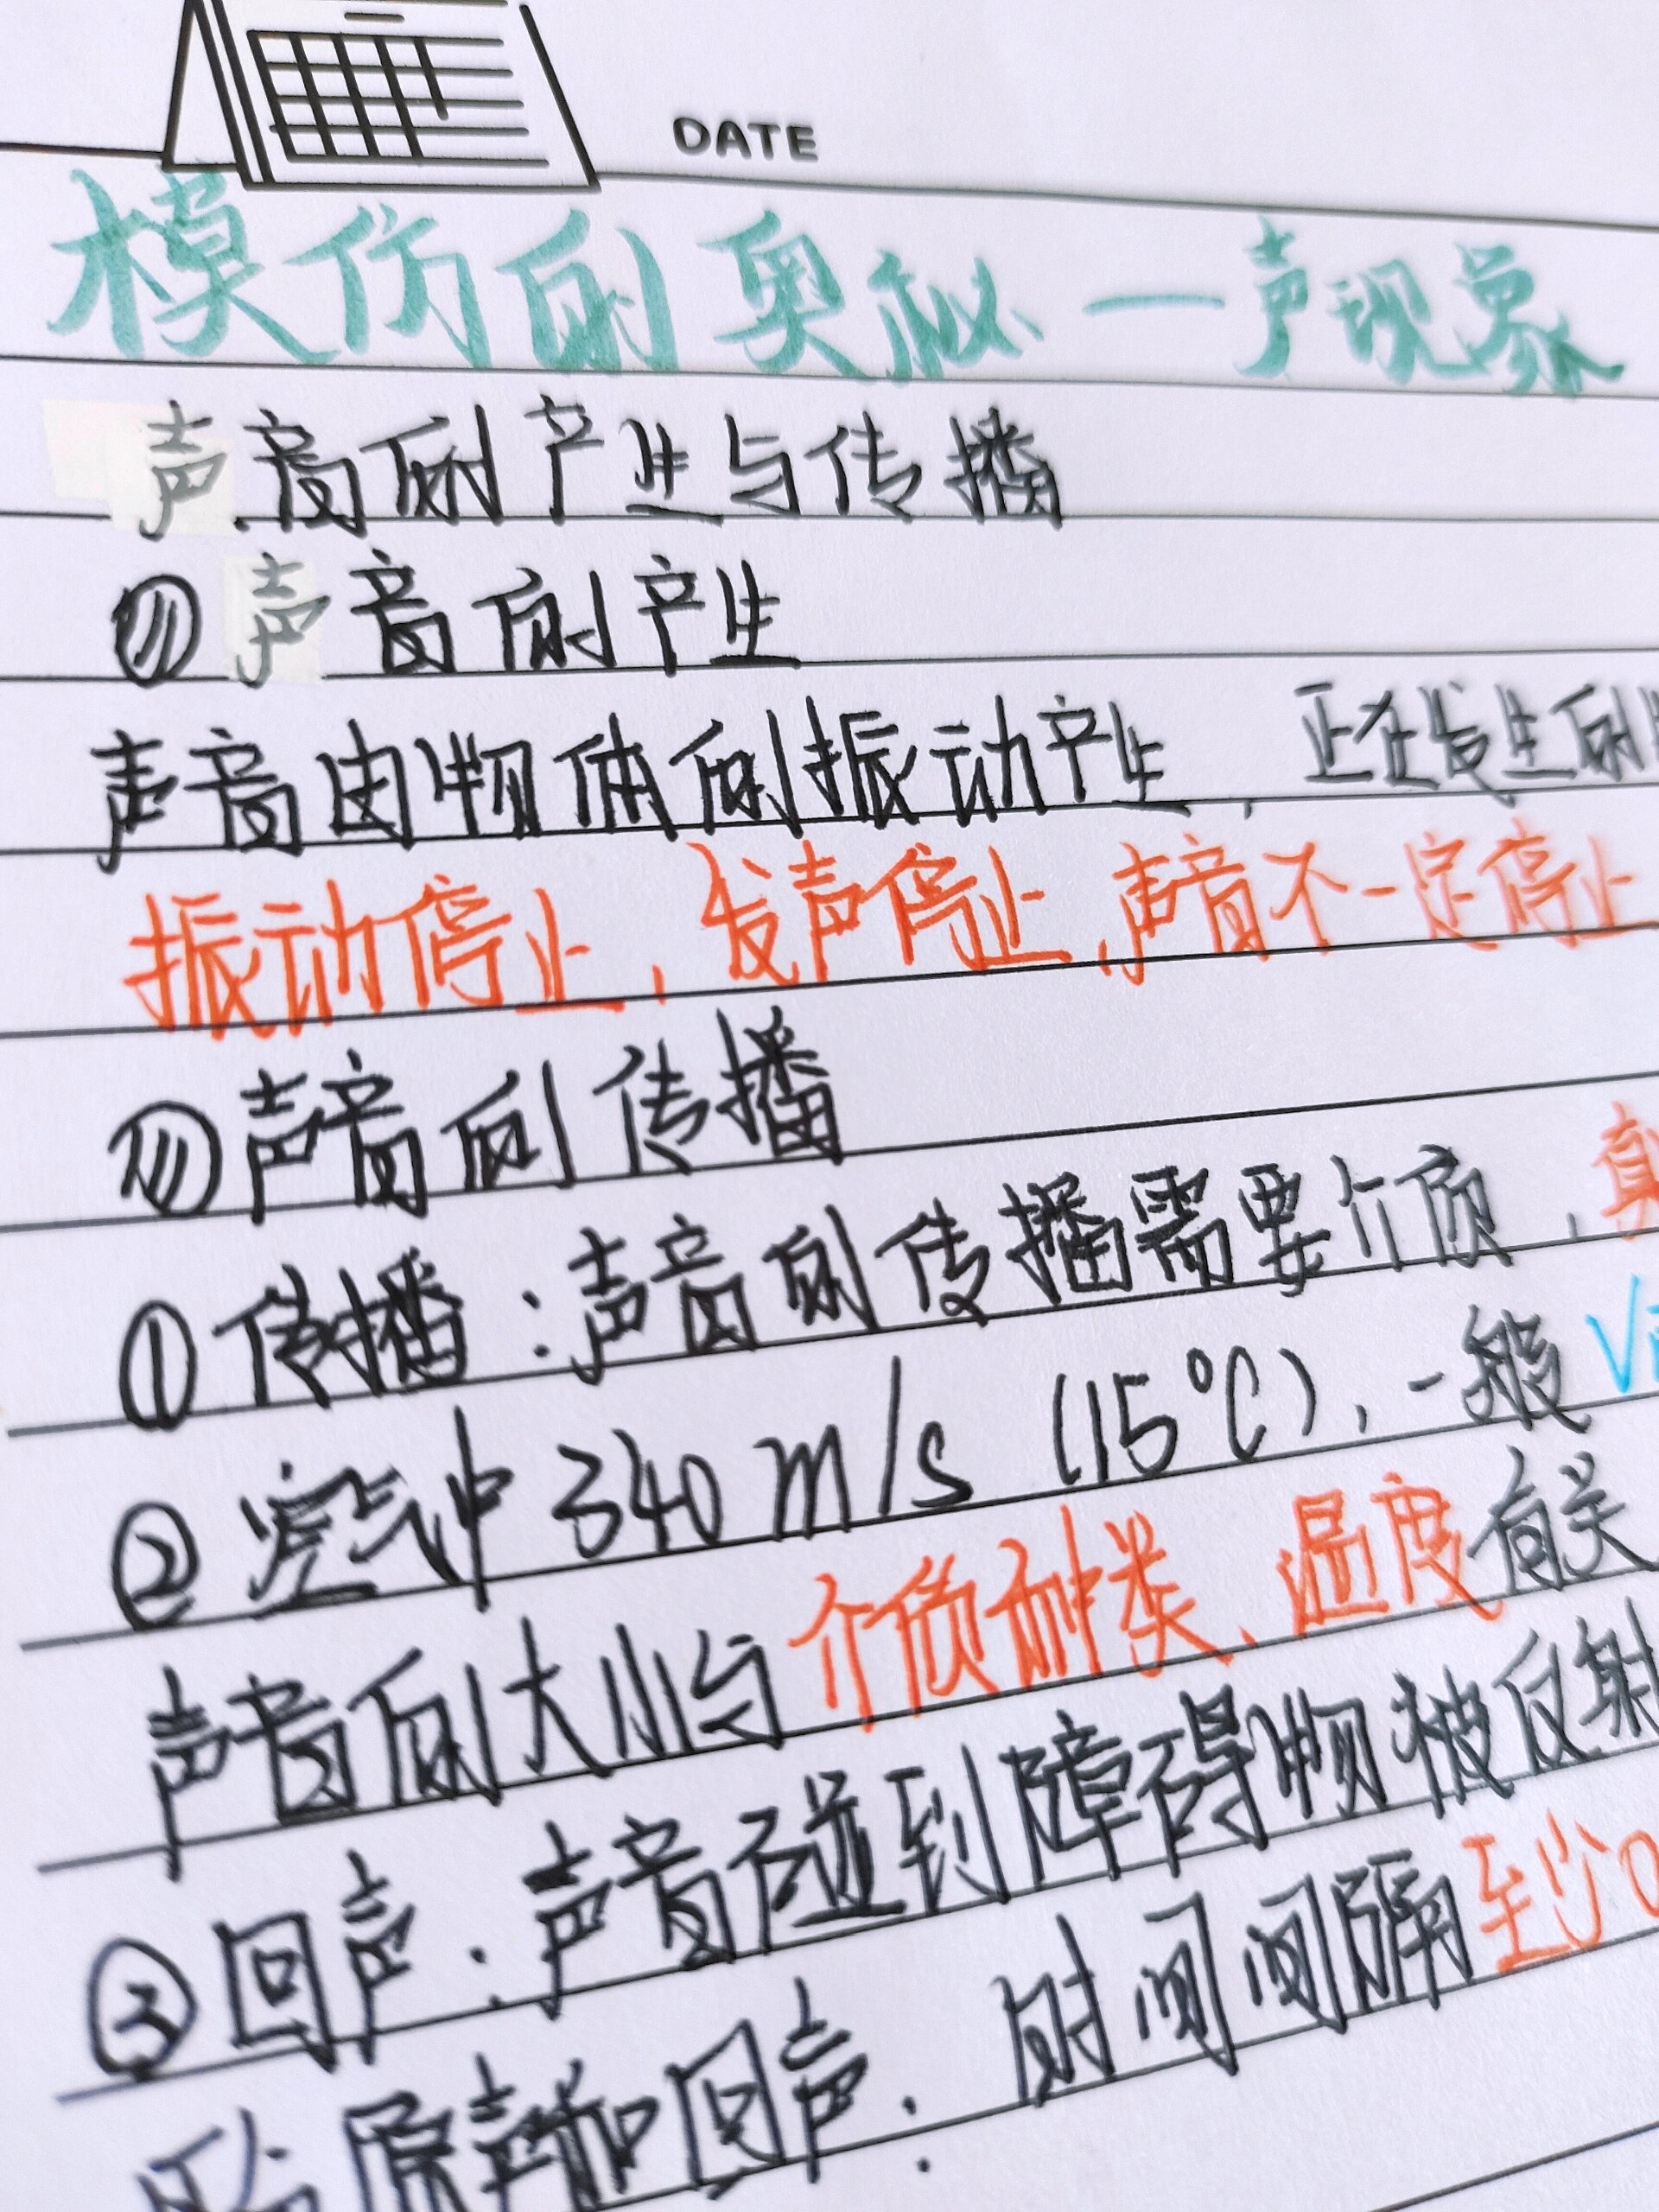 DATE
模仿的奥秘—声现象
声音的产生与传播
声音的产生
声音由物体的振动产生，正在发生的
振动停止，发声停止，声音不一定停止
声音的传播
①传播：声音的传播需要介质，真
②空气中340m/s（15℃），一般V
声音的大小与介质种类、温度有关
③回声：声音碰到障碍物被反射
原声和回声：时间间隔至少0